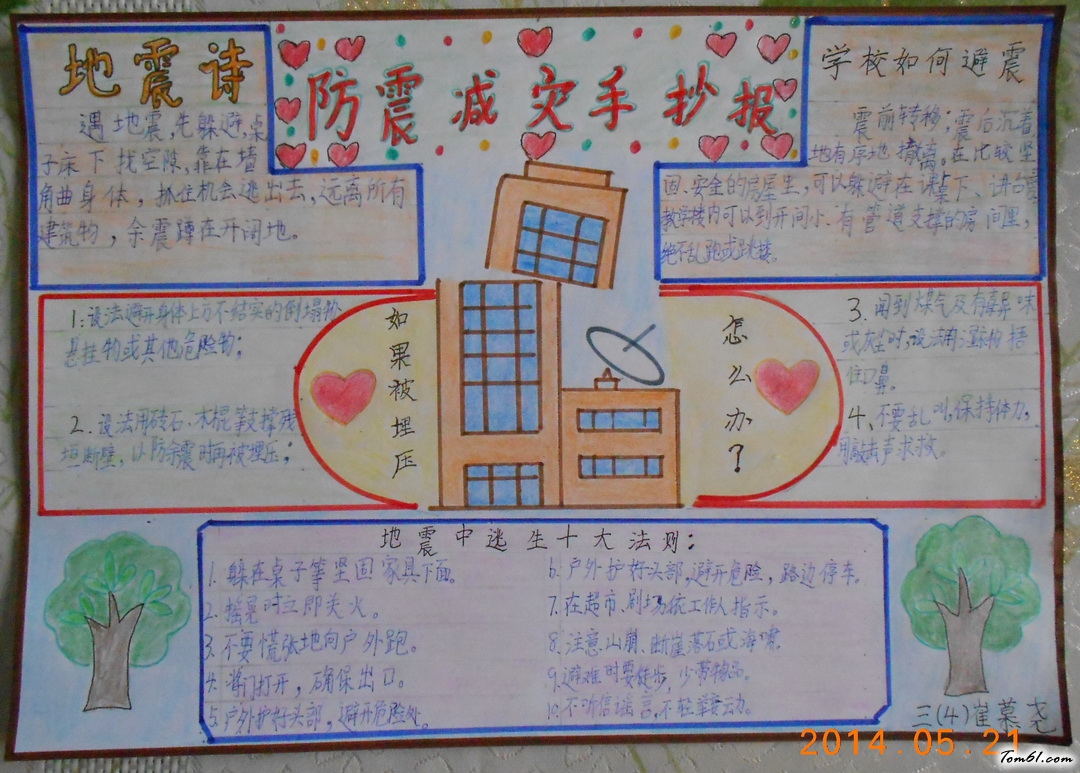 防震减灾手抄报
地震诗
遇地震,先躲避,桌
子床下找空隙,靠在墙
角曲身体，抓住机会逃出去,远离所有
建筑物，余震蹲在开阔地。
学校如何避震
震前转移；震后沉着
地有序地撤离。在比较坚
固、安全的房屋里,可以躲避在课桌下、讲台旁
教学楼内可以到开间小、有管道支撑的房间里,
绝不乱跑或跳楼。
如果被埋压
怎么办？
1:设法避开身体上方不结实的倒塌物
悬挂物或其他危险物;
2.设法用砖石、木棍等支撑残
垣断壁,以防余震时再被埋压;
3.闻到煤气及有毒异味
或灰尘时,设法用湿衣物捂
住口鼻。
4、不要乱叫,保持体力,
用敲击声求救。
地震中逃生十大法则:
1.躲在桌子等坚固家具下面。
2.摇晃时立即关火。
3.不要慌张地向户外跑。
4.将门打开，确保出口。
5.户外护好头部,避开危险处。
6.户外护好头部,避开危险，路边停车。
7.在超市、剧场依工作人指示。
8.注意山崩、断崖落石或海啸。
9.避难时要徒步,少带物品。
10.不听信谣言,不轻举妄动。
三(4)崔慕尧
2014.05.21
Tom61.com